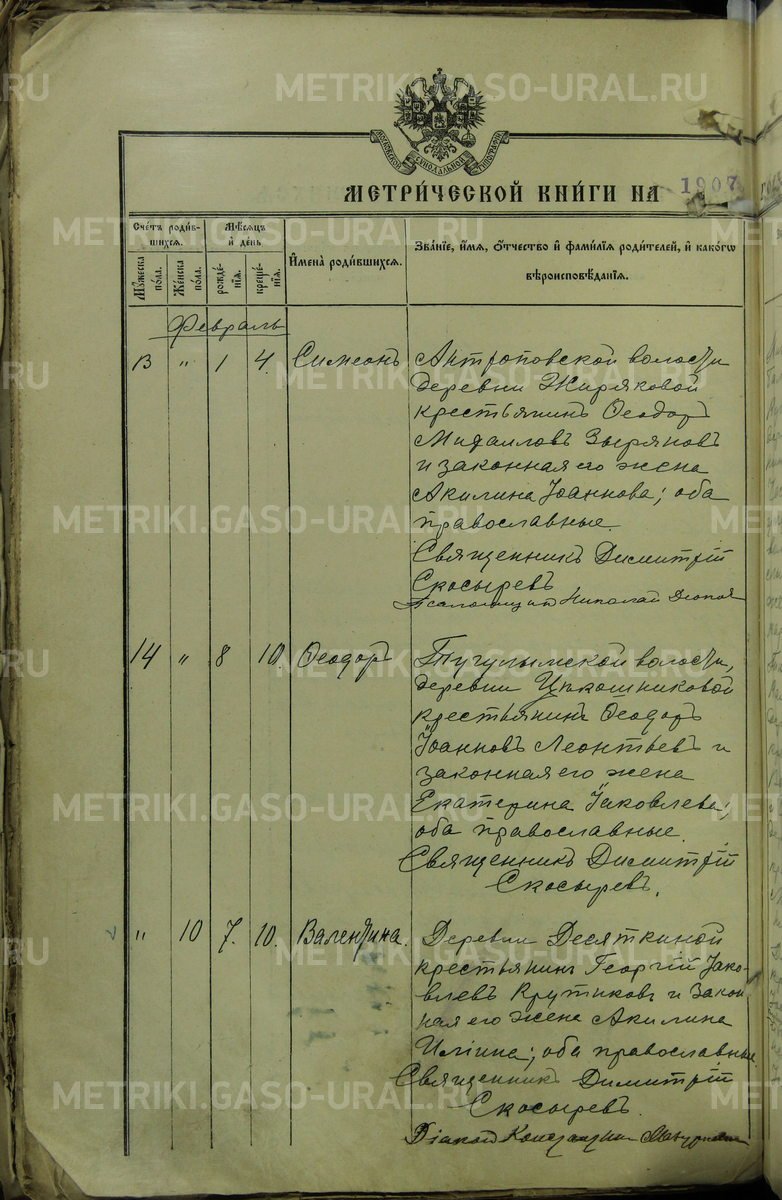 METRIKI.GASO-URAL.RU
МОСКОВСКОЙ СѴНОДАЛЬНОЙ ТИПОГРАФІИ
МЕТРИ́ЧЕСКОЙ КНИ́ГИ НА 1907
Сче́тъ роди́в-
шихся.
Мѣ́сяцъ
и҆ де́нь
И҆мена̀ роди́вшихся.
Зва́нїе, и҆́мя, ѻ҆́тчество и҆ фами́лїя роди́телей, и҆ како́гѡ
вѣроисповѣ́данїя.
Мꙋ́жеска по́ла.
Же́нска по́ла.
рожде́-
нїя.
креще́-
нїя.
Февраль
13 " 1 4. Симеонъ Антроповской волости
деревни Жиряковой
крестьянинъ Ѳеодоръ
Михаиловъ Зыряновъ
и законная его жена
Акилина Іоаннова; оба
православные.
Священникъ Димитрій
Скосыревъ
Псаломщикъ Николай
14 " 8 10. Ѳеодоръ Тугулымской волости,
деревни
крестьянинъ Ѳеодоръ
Іоанновъ Леонтьевъ и
законная его жена
Екатерина Іаковлева;
оба православные.
Священникъ Димитрій
Скосыревъ.
" 10 7. 10. Валентина. Деревни Десяткиной
крестьянинъ Георгій Іако-
влевъ Крутиковъ и закон
ная его жена Акилина
Иліина; оба православные
Священникъ Димитрій
Скосыревъ.
Діаконъ